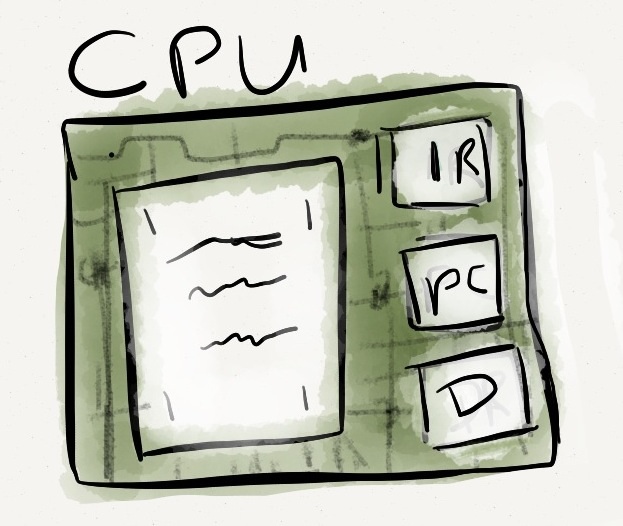 CPU
IR
PC
D